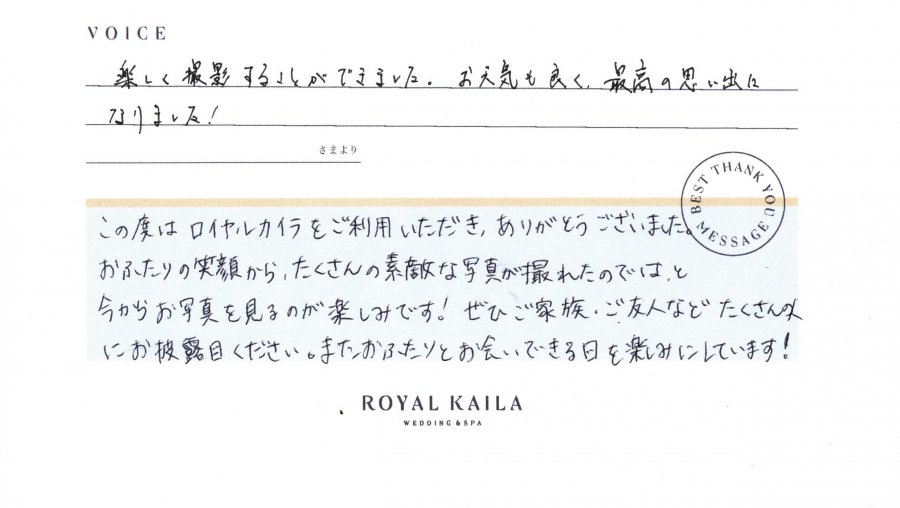 VOICE
楽しく撮影することができました。お天気も良く、最高の思い出に
なりました!
さまより
BEST THANK YOU MESSAGE
この度はロイヤルカイラをご利用いただき、ありがとうございました。
おふたりの笑顔から、たくさんの素敵な写真が撮れたのでは、と
今からお写真を見るのが楽しみです！ぜひご家族・ご友人などたくさんの人
にお披露目ください。またおふたりとお会いできる日を楽しみにしています！
ROYAL KAILA
WEDDING & SPA